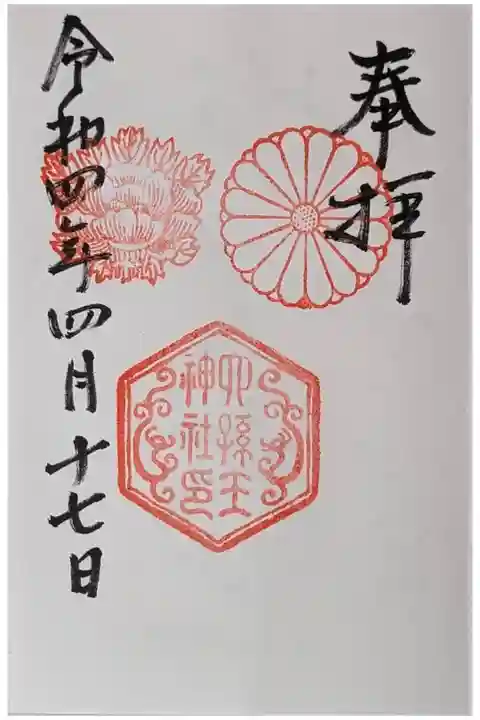 奉拝
六孫王
神社印
令和四年四月十七日